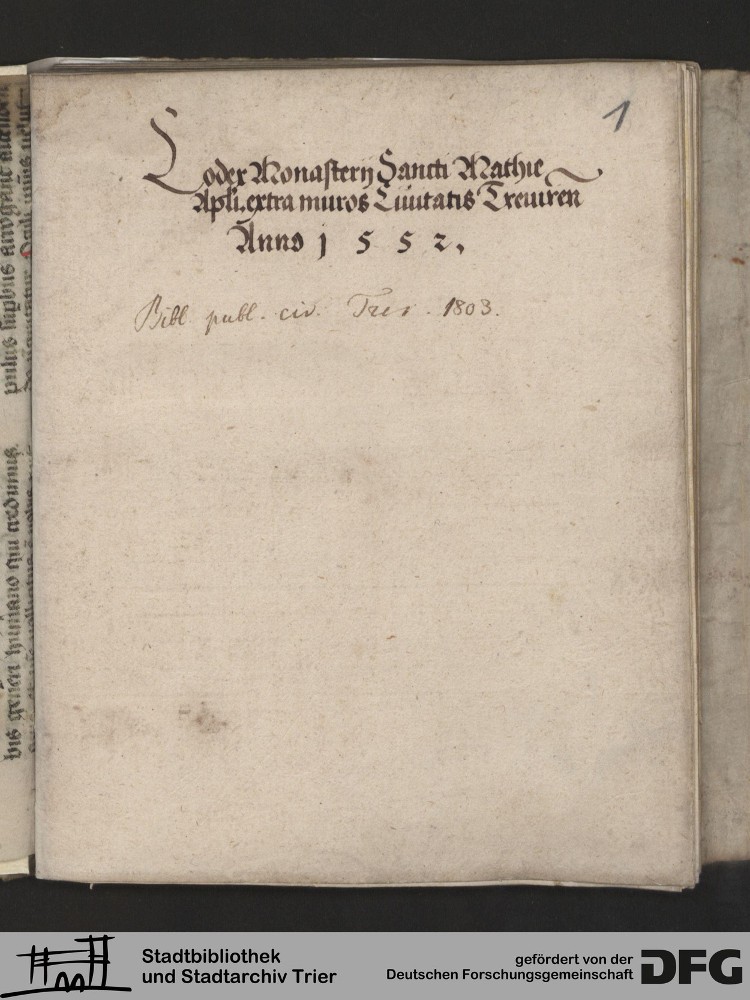 1
Codex Monasterij Sancti Mathie
Apli. extra muros Ciuitatis Treuiren
Anno 1552,
Bibl. publ. civ. Trev. 1803.
Stadtbibliothek
und Stadtarchiv Trier
gefördert von der
Deutschen Forschungsgemeinschaft
DFG